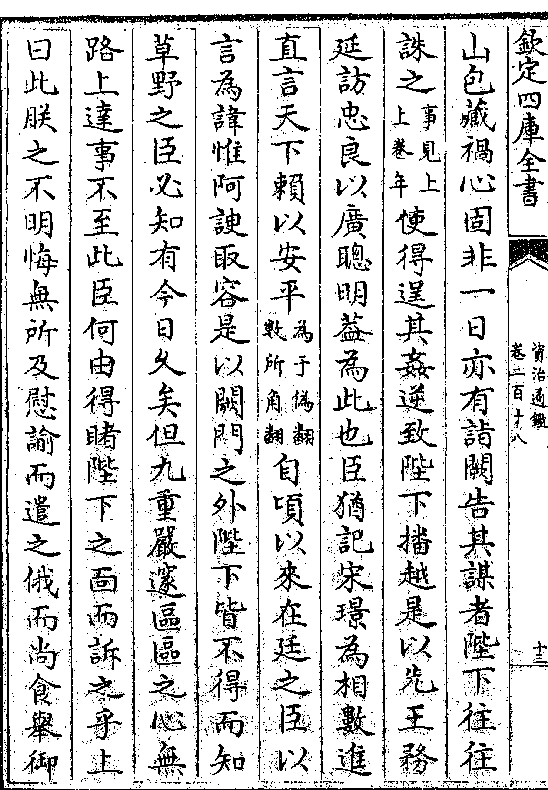 欽定四庫全書
資治通鑑
卷二百十八
十三
山包藏禍心固非一日亦有詣闕告其謀者陛下往往
誅之事見上上卷年使得逞其姦逆致陛下播越是以先王務
延訪忠良以廣聰明葢為此也臣猶記宋璟為相數進
直言天下賴以安平為于偽翻數所角翻自頃以來在廷之臣以
言為諱惟阿諛取容是以闕門之外陛下皆不得而知
草野之臣必知有今日乆矣但九重嚴邃區區之心無
路上達事不至此臣何由得睹陛下之面而訴之乎上
曰此朕之不明悔無所及慰諭而遣之俄而尚食舉御